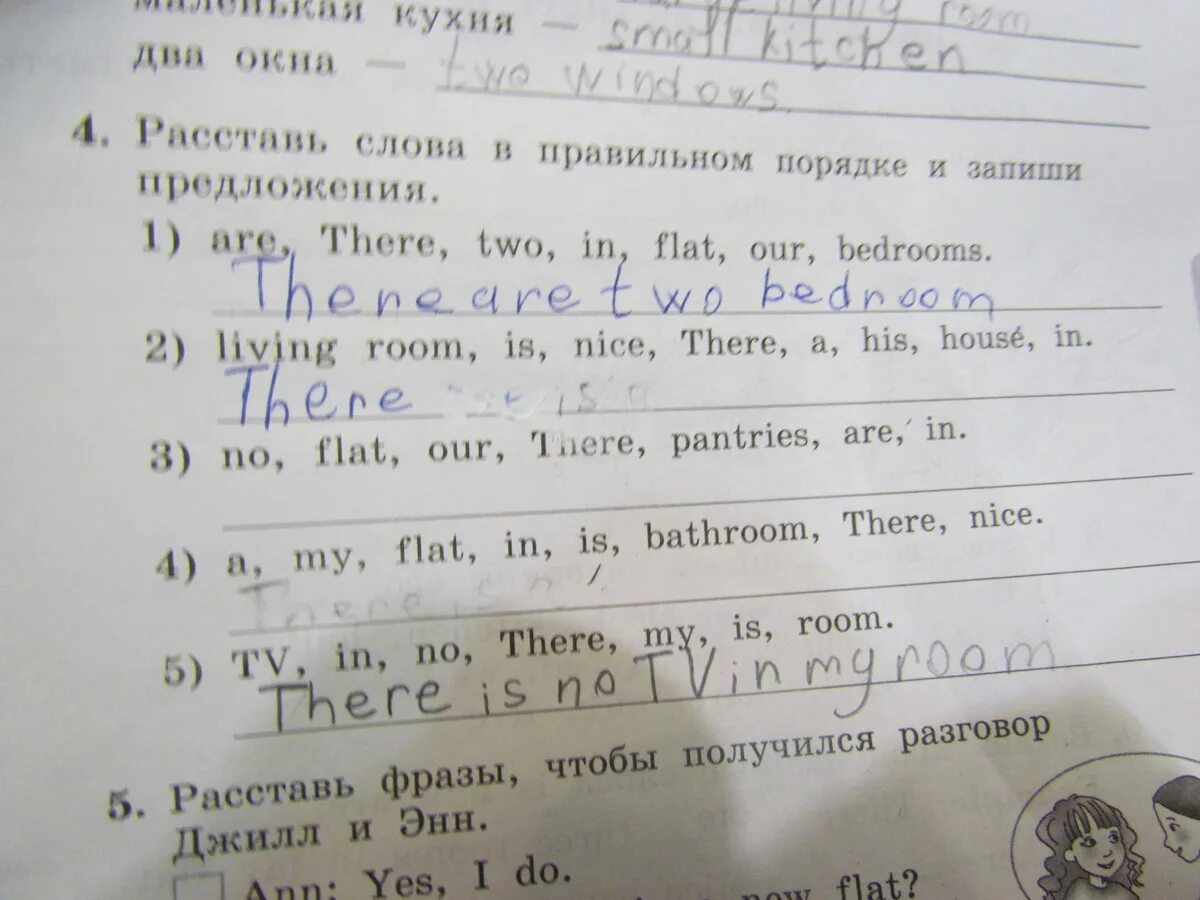 маленькая кухня — small kitchen
living room
два окна — two windows
4. Расставь слова в правильном порядке и запиши
предложения.
1) are, There, two, in, flat, our, bedrooms.
There are two bedroom
2) living room, is, nice, There, a, his, house, in.
There is a
3) no, flat, our, There, pantries, are, in.
4) a, my, flat, in, is, bathroom, There, nice.
There is
5) TV, in, no, There, my, is, room.
There is no TV in my room
5. Расставь фразы, чтобы получился разговор
Джилл и Энн.
Ann: Yes, I do.
flat?